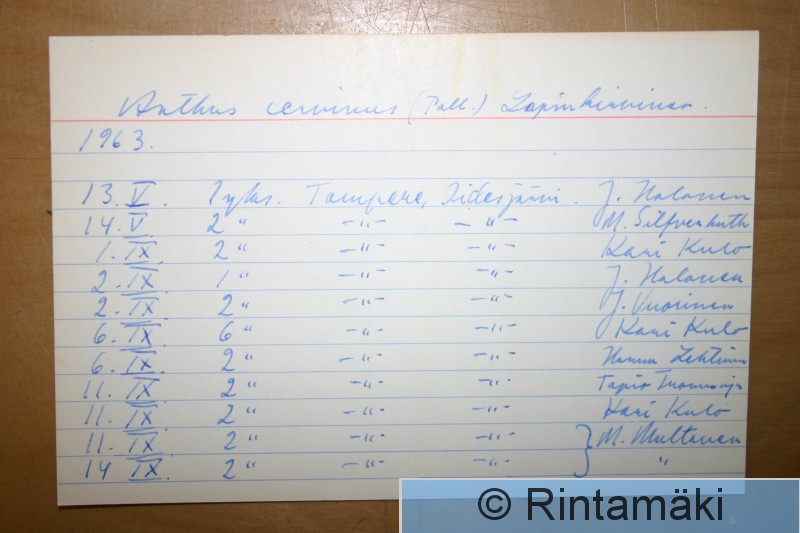 Anthus cervinus (Pall.) Lapinkirvinen.
1963.
13. V. 1 yks. Tampere, Iidesjärvi. J. Halonen
14. V 2 " -"- -"- M. Silfverhuth
1. IX. 2 " -"- -"- Kari Kulo
2. IX. 1 " -"- -"- J. Halonen
2. IX 2 " -"- -"- J. Vuorinen
6. IX 6 " -"- -"- Kari Kulo
6. IX. 2 " -"- -"- Hannu Lehtinen
11. IX 2 " -"- -"- Tapio
11. IX 2 " -"- -"- Kari Kulo
11. IX 2 " -"- -"- } M. Multanen
14 IX. 2 " -"- -"- "
© Rintamäki